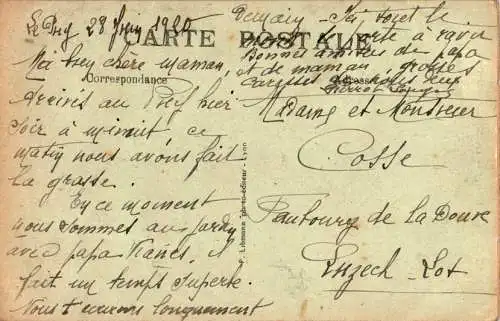 Le Puy 28 Juin 1920
CARTE POSTALE
Ma bien chère maman,
Correspondance
Arrivés au Puy hier
soir à minuit ce
matin nous avons fait
la grasse.
En ce moment
nous sommes au jardin
avec papa il
fait un temps superbe.
Nous t'
longuement
P. Libmann photo-éditeur - Lyon
Demain
à ravir
Bonnes de papa
et de maman, grosses
caresses de nous deux
Adresse
Madame et Monsieur
Cosse
Faubourg de la Douve
Luzech - Lot